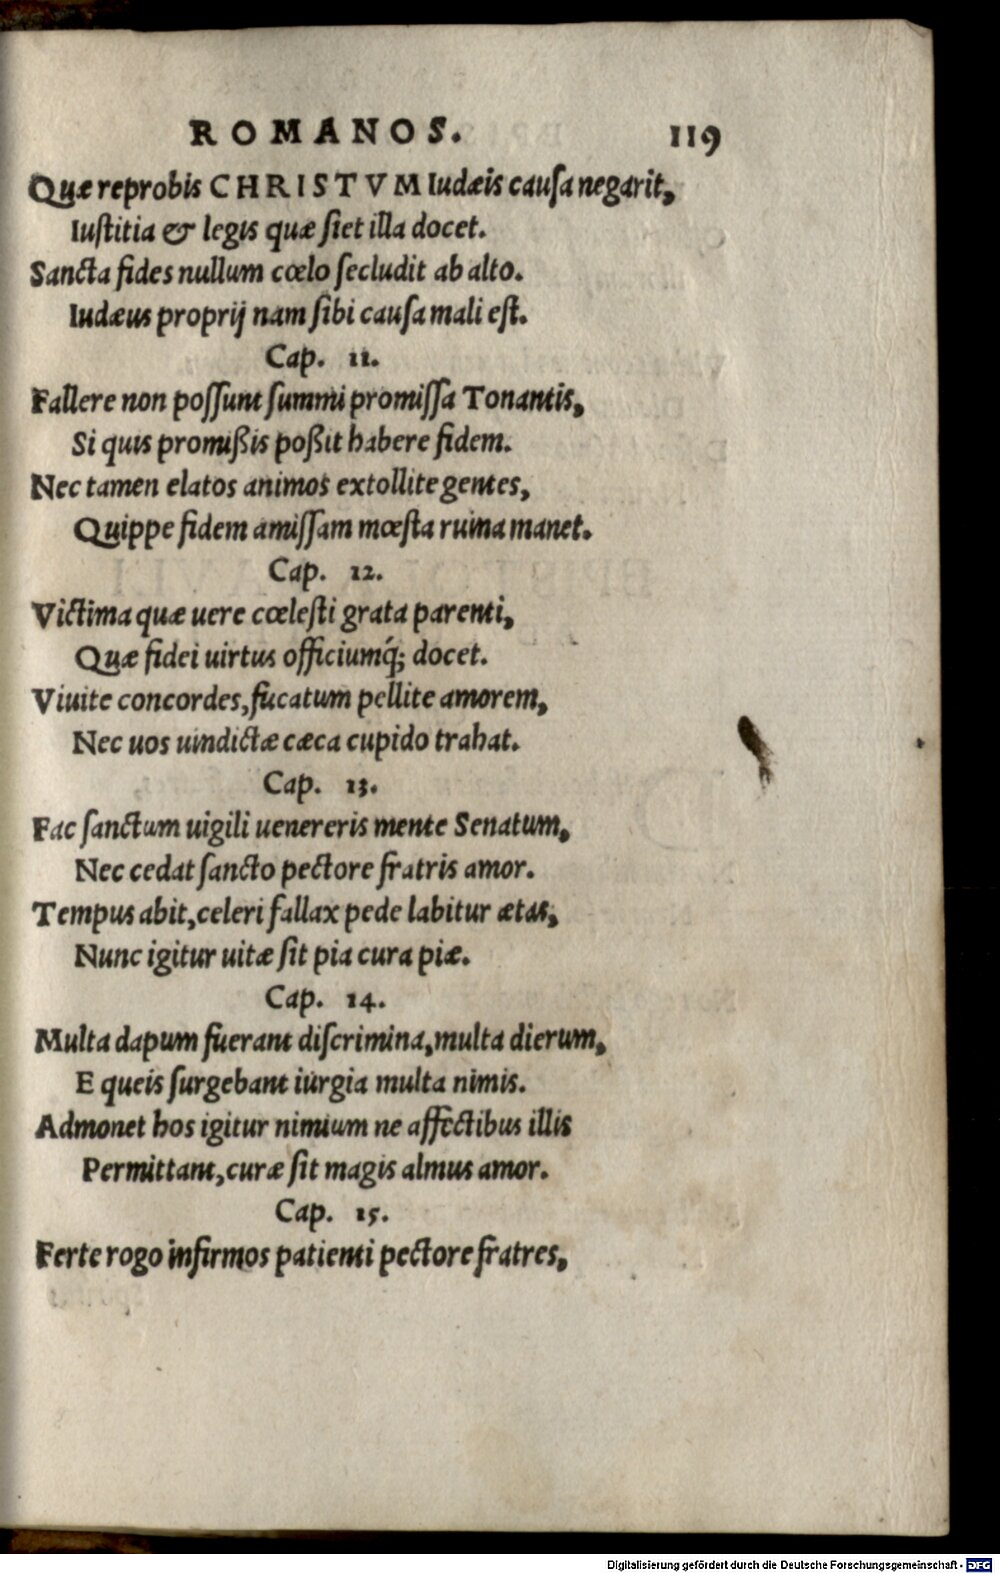 ROMANOS. 119
Quæ reprobis CHRISTVM Iudæis cauſa negarit,
Iuſtitia & legis quæ ſiet illa docet.
Sancta fides nullum cœlo ſecludit ab alto.
Iudæus proprij nam ſibi cauſa mali eſt.
Cap. 11.
Fallere non poſſunt ſummi promiſſa Tonantis,
Si quis promißis poßit habere fidem.
Nec tamen elatos animos extollite gentes,
Quippe fidem amiſſam mœſta ruina manet.
Cap. 12.
Victima quæ uere cœleſti grata parenti,
Quæ fidei uirtus officiumq́; docet.
Viuite concordes, fucatum pellite amorem,
Nec uos uindictæ cæca cupido trahat.
Cap. 13.
Fac ſanctum uigili uenereris mente Senatum,
Nec cedat ſancto pectore fratris amor.
Tempus abit, celeri fallax pede labitur ætas,
Nunc igitur uitæ ſit pia cura piæ.
Cap. 14.
Multa dapum fuerant diſcrimina, multa dierum,
E queis ſurgebant iurgia multa nimis.
Admonet hos igitur nimium ne affectibus illis
Permittant, curæ ſit magis almus amor.
Cap. 15.
Ferte rogo infirmos patienti pectore fratres,
Digitalisierung gefördert durch die Deutsche Forschungsgemeinschaft - DFG